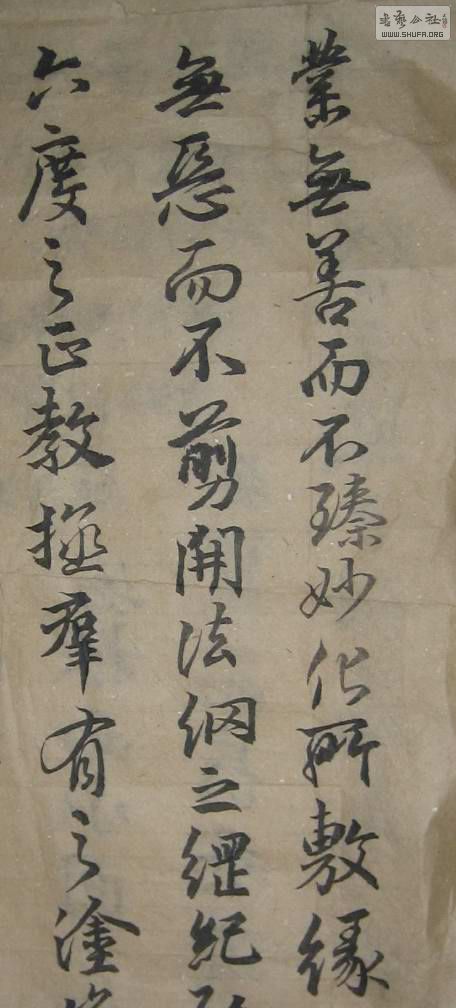 業無善而不臻妙化所敷緣
無惡而不剪開法網之綱紀
六度之正教拯群有之塗
書藝公社
WWW.SHUFA.ORG